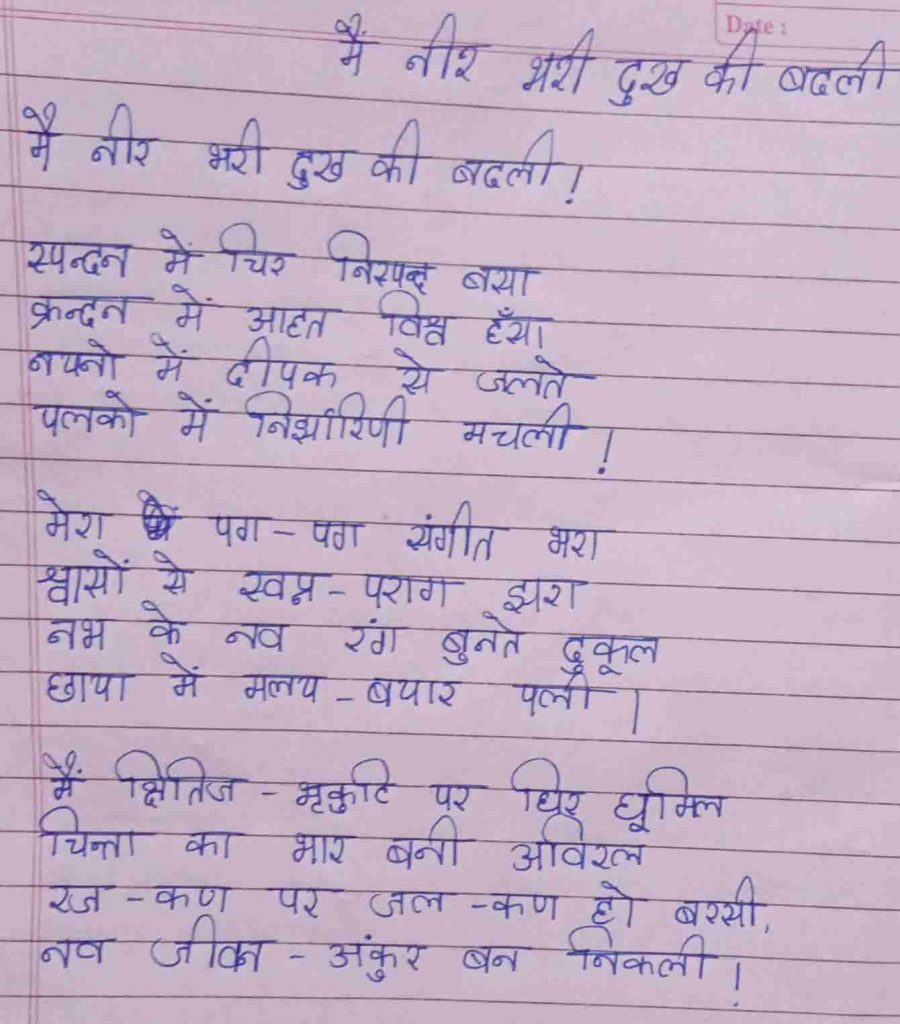 Date :
मैं नीर भरी दुख की बदली
मै नीर भरी दुख की बदली !
स्पन्दन में चिर निस्पन्द बसा
क्रन्दन में आहत विश्व हँसा
नयनो में दीपक से जलते
पलको में निर्झारिणी मचली !
मेरा पग - पग संगीत भरा
श्वासों से स्वप्न - पराग झरा
नभ के नव रंग बुनते दुकूल
छाया में मलय - बयार पली ।
मैं क्षितिज - भृकुटि पर घिर धूमिल
चिन्ता का भार बनी अविरल
रज - कण पर जल - कण हो बरसी,
नव जीवन - अंकुर बन निकली !